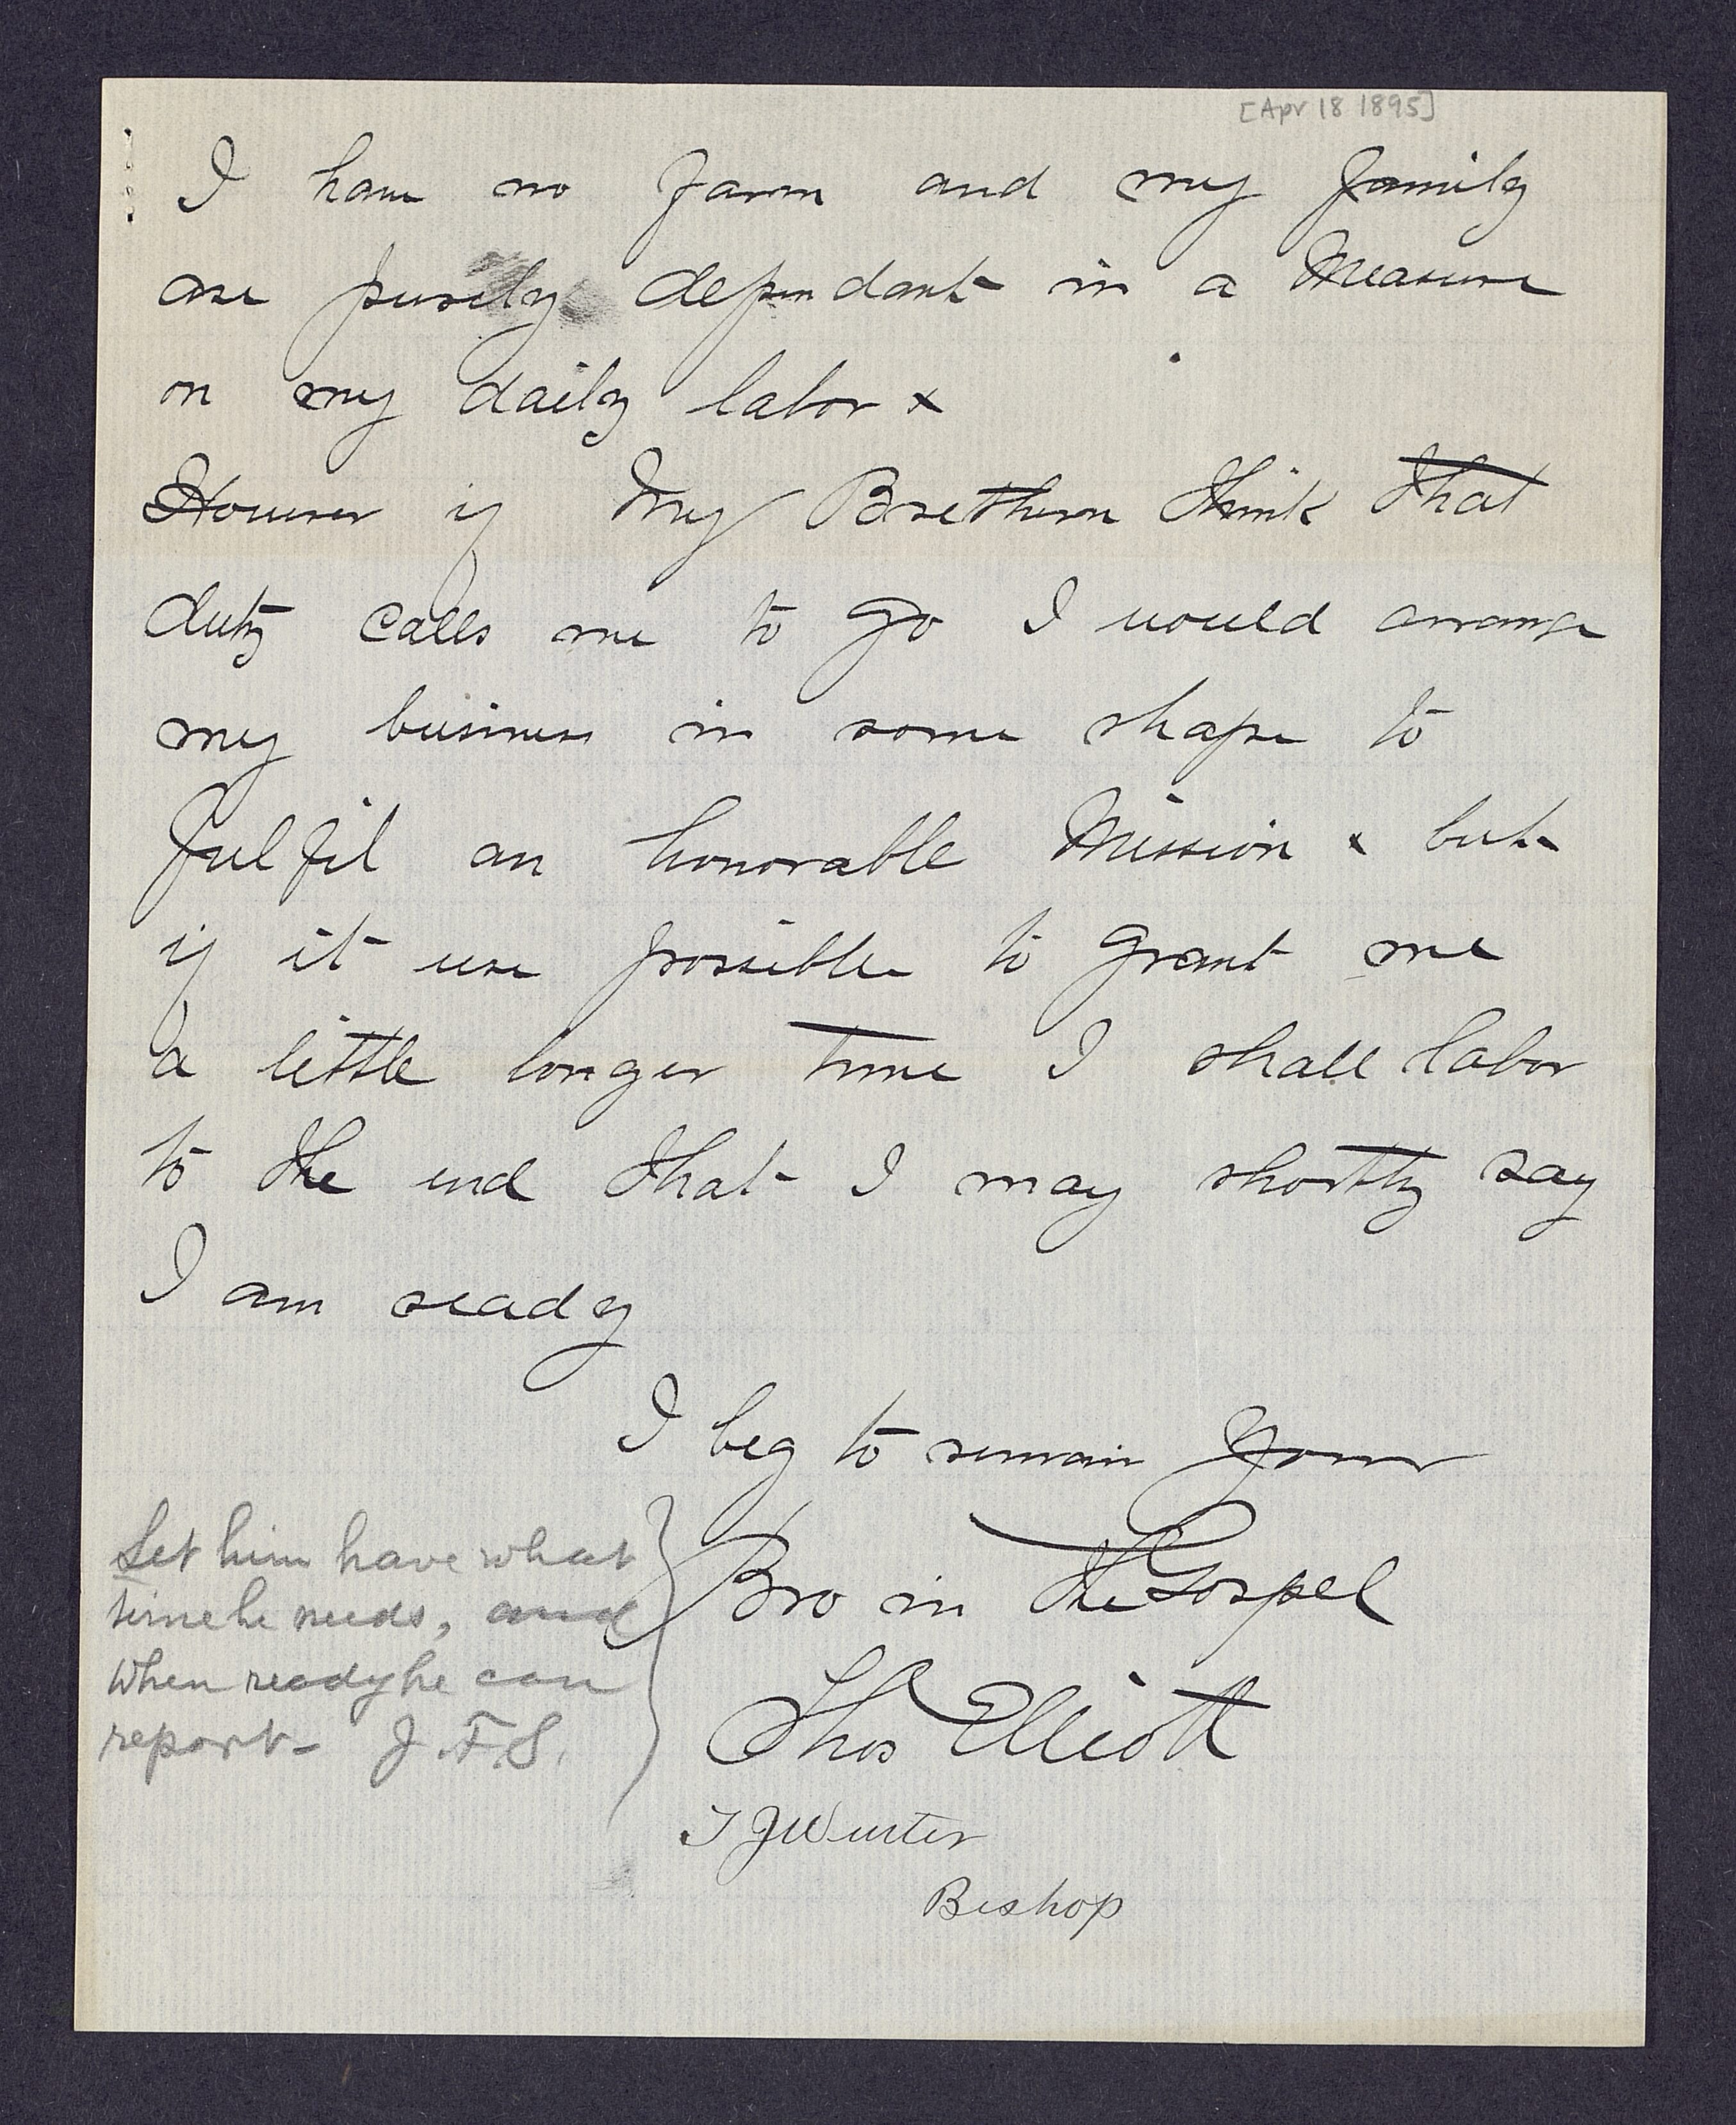 [Apr 18 1895]
I have no farm and my family
are purely dependant in a Measure
on my daily labor x
However if my Brethern think that
duty calls me to go I would arrange
my business in some shape to
fulfil an honorable Mission x but
if it use possible to grant me
a little longer time I shall labor
to the end that I may shortly say
I am ready
I beg to remain your
Bro in the Gospel
Thos Elliott
Let him have what
time he needs, and
when ready he can
report - J.F.S.
T J Winter
Bishop